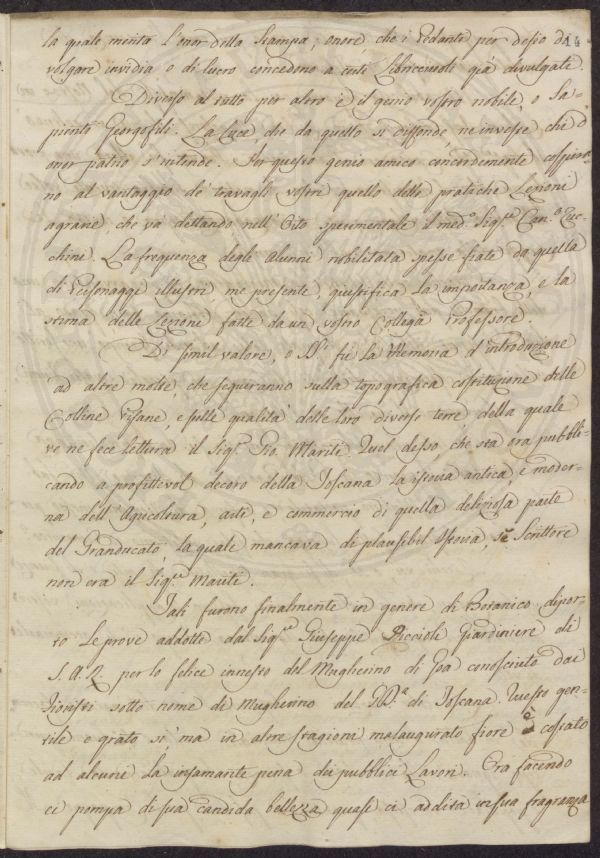 14
la quale merita l'onor della Stampa; onore che i Pedanti per desio di
volgare invidia o di lucro concedono a certi Libricciuoli già divulgati.
Diverso al tutto per altro è il genio vostro nobile, o Sa-
pienti Georgofili. La luce che da quello si diffonde, ne investe chi d
onor patrio s'intende. Per questo genio amico concordemente cospira-
no al vantaggio de' travagli vostri quello delle pratiche Lezioni
agrarie, che va dettando nell'Orto sperimentale il med.º Sig.re Can.º Zuc-
chini. La frequenza degli Alunni nobilitata spesse fiate da quella
di Personaggi illustri, me presente, giustifica la importanza, e la
stima delle Lezioni fatte da un vostro Collega Professore.
Di simil valore, o fù la Memoria d'introduzione
ad altre molte, che seguiranno sulla topografica costituzione delle
Colline Pisane, e sulle qualità delle loro diverse terre, della quale
ve ne fece lettura il Sig.re Gio. Mariti. Quel desso, che sta ora pubbli-
cando a profittevol decoro della Toscana la istoria antica, e moder-
na dell'Agricoltura, arti, e commercio di quella deliziosa parte
del Granducato, la quale mancava di plausibil Istoria, se Scrittore
non era il Sig.re Mariti.
Tali furono finalmente in genere di Botanico dipor-
to le prove addotte dal Sig.re Giuseppe Piccioli Giardiniere di
S. A. R. per lo felice innesto del Mugherino di Goa conosciuto dai
Fioristi sotto nome di Mugherino del G.D.a di Toscana. Questo gen-
tile e grato sì, ma in altre stagioni malaugurato fiore è costato
ad alcuni la infamante pena dei pubblici Lavori. Ora facendo
ci pompa di sua candida bellezza quasi ci addita in sua fragranza